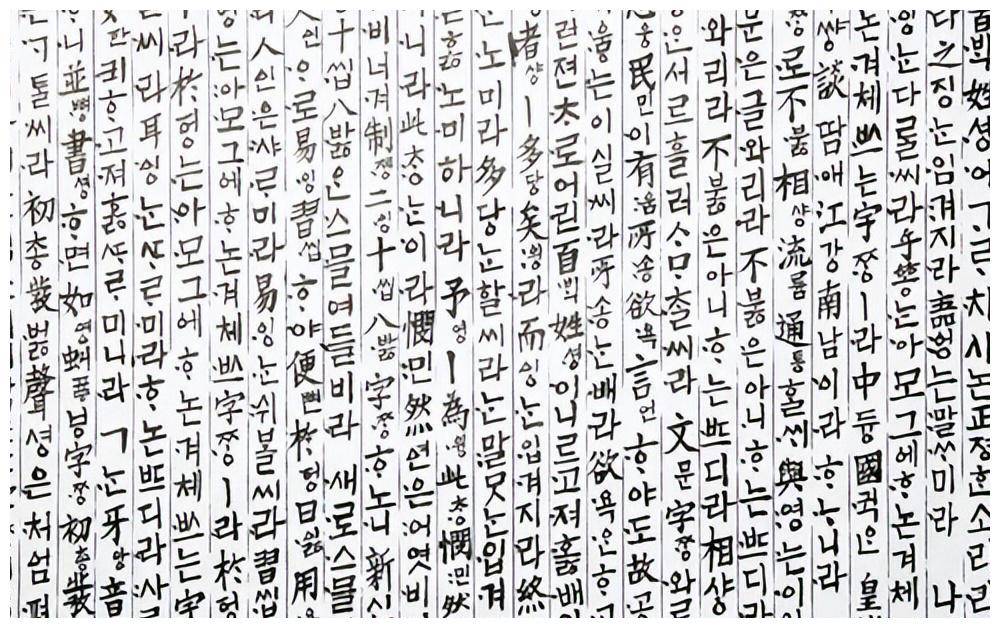 ᄇᆡᆨ姓셩어ᄀᆞᄅᆞ치시논正졍ᄒᆞᆫ소리라
라之징ᄂᆞᆫ입겨지라語엉는말ᄊᆞ미라 나
잉ᄂᆞᆫ다ᄅᆞᆯ씨라乎ᅘᅩᆼᄂᆞᆫ아모그에ᄒᆞ논겨체
논겨체ᄡᅳ는字ᄍᆞᆼㅣ라中듕國귁ᄋᆞᆫ 皇
썅談땀애江강南남이라ᄒᆞᄂᆞ니라
ᄍᆞᆼ로不붏相샹流륳通통ᄒᆞᆯ씨與영는이
문은글와리라不붏은아니ᄒᆞ는ᄠᅳ디라
와리라不붏은아니ᄒᆞ는ᄠᅳ디라相샹
ᄋᆞᆫ서르흘러ᄉᆞᄆᆞᄎᆞᆯ씨라 文문字ᄍᆞᆼ와로
옹民민이有ᅌᅮᇢ所송欲욕言언ᄒᆞ야도故공
웅는이실씨라所송ᄂᆞᆫ배라欲욕ᄋᆞᆫᄒᆞ고
런젼ᄎᆞ로어린百ᄇᆡᆨ姓셩이니르고져호ᇙ배
者쟝ㅣ多당矣읭라而잉ᄂᆞᆫ입겨지라終
노미라多당ᄂᆞᆫ할씨라ᄂᆞᆫ말ᄆᆞᆺᄂᆞᆫ입겨
ᄃᆞᆫ호ᇙ노미하니라 予영ㅣ為윙此ᄎᆞᆼ憫민然
니라此ᄎᆞᆼᄂᆞᆫ이라憫민然연은어엿비
비너겨制젱二잉十씹八바ᇙ字ᄍᆞᆼᄒᆞ노니 新신
十씹八바ᇙᄋᆞᆫ스믈여듧비라 새로스믈
人인ᄋᆞ로易잉習씹ᄒᆞ야便뼌於헝日이ᇙ用
人인은샤ᄅᆞ미라易잉ᄂᆞᆫ쉬ᄫᅳᆯ씨라習씹
ᄂᆞᆫ아모그에ᄒᆞ논겨체ᄡᅳ는字ᄍᆞᆼㅣ라於헝
라於헝는아모그에ᄒᆞ논겨체ᄡᅳ는字
씨라耳잉ᄂᆞᆫᄯᆞᄅᆞ미라ᄒᆞ논ᄠᅳ디라사
한킈ᄒᆞ고져호ᇙᄯᆞᄅᆞ미니라 ㄱᄂᆞᆫ牙앙音
니並뼝書셩ᄒᆞ면如영虯뀨ᇢ字ᄍᆞᆼ初총發
톨씨라 初총發버ᇙ聲셩은처엄펴